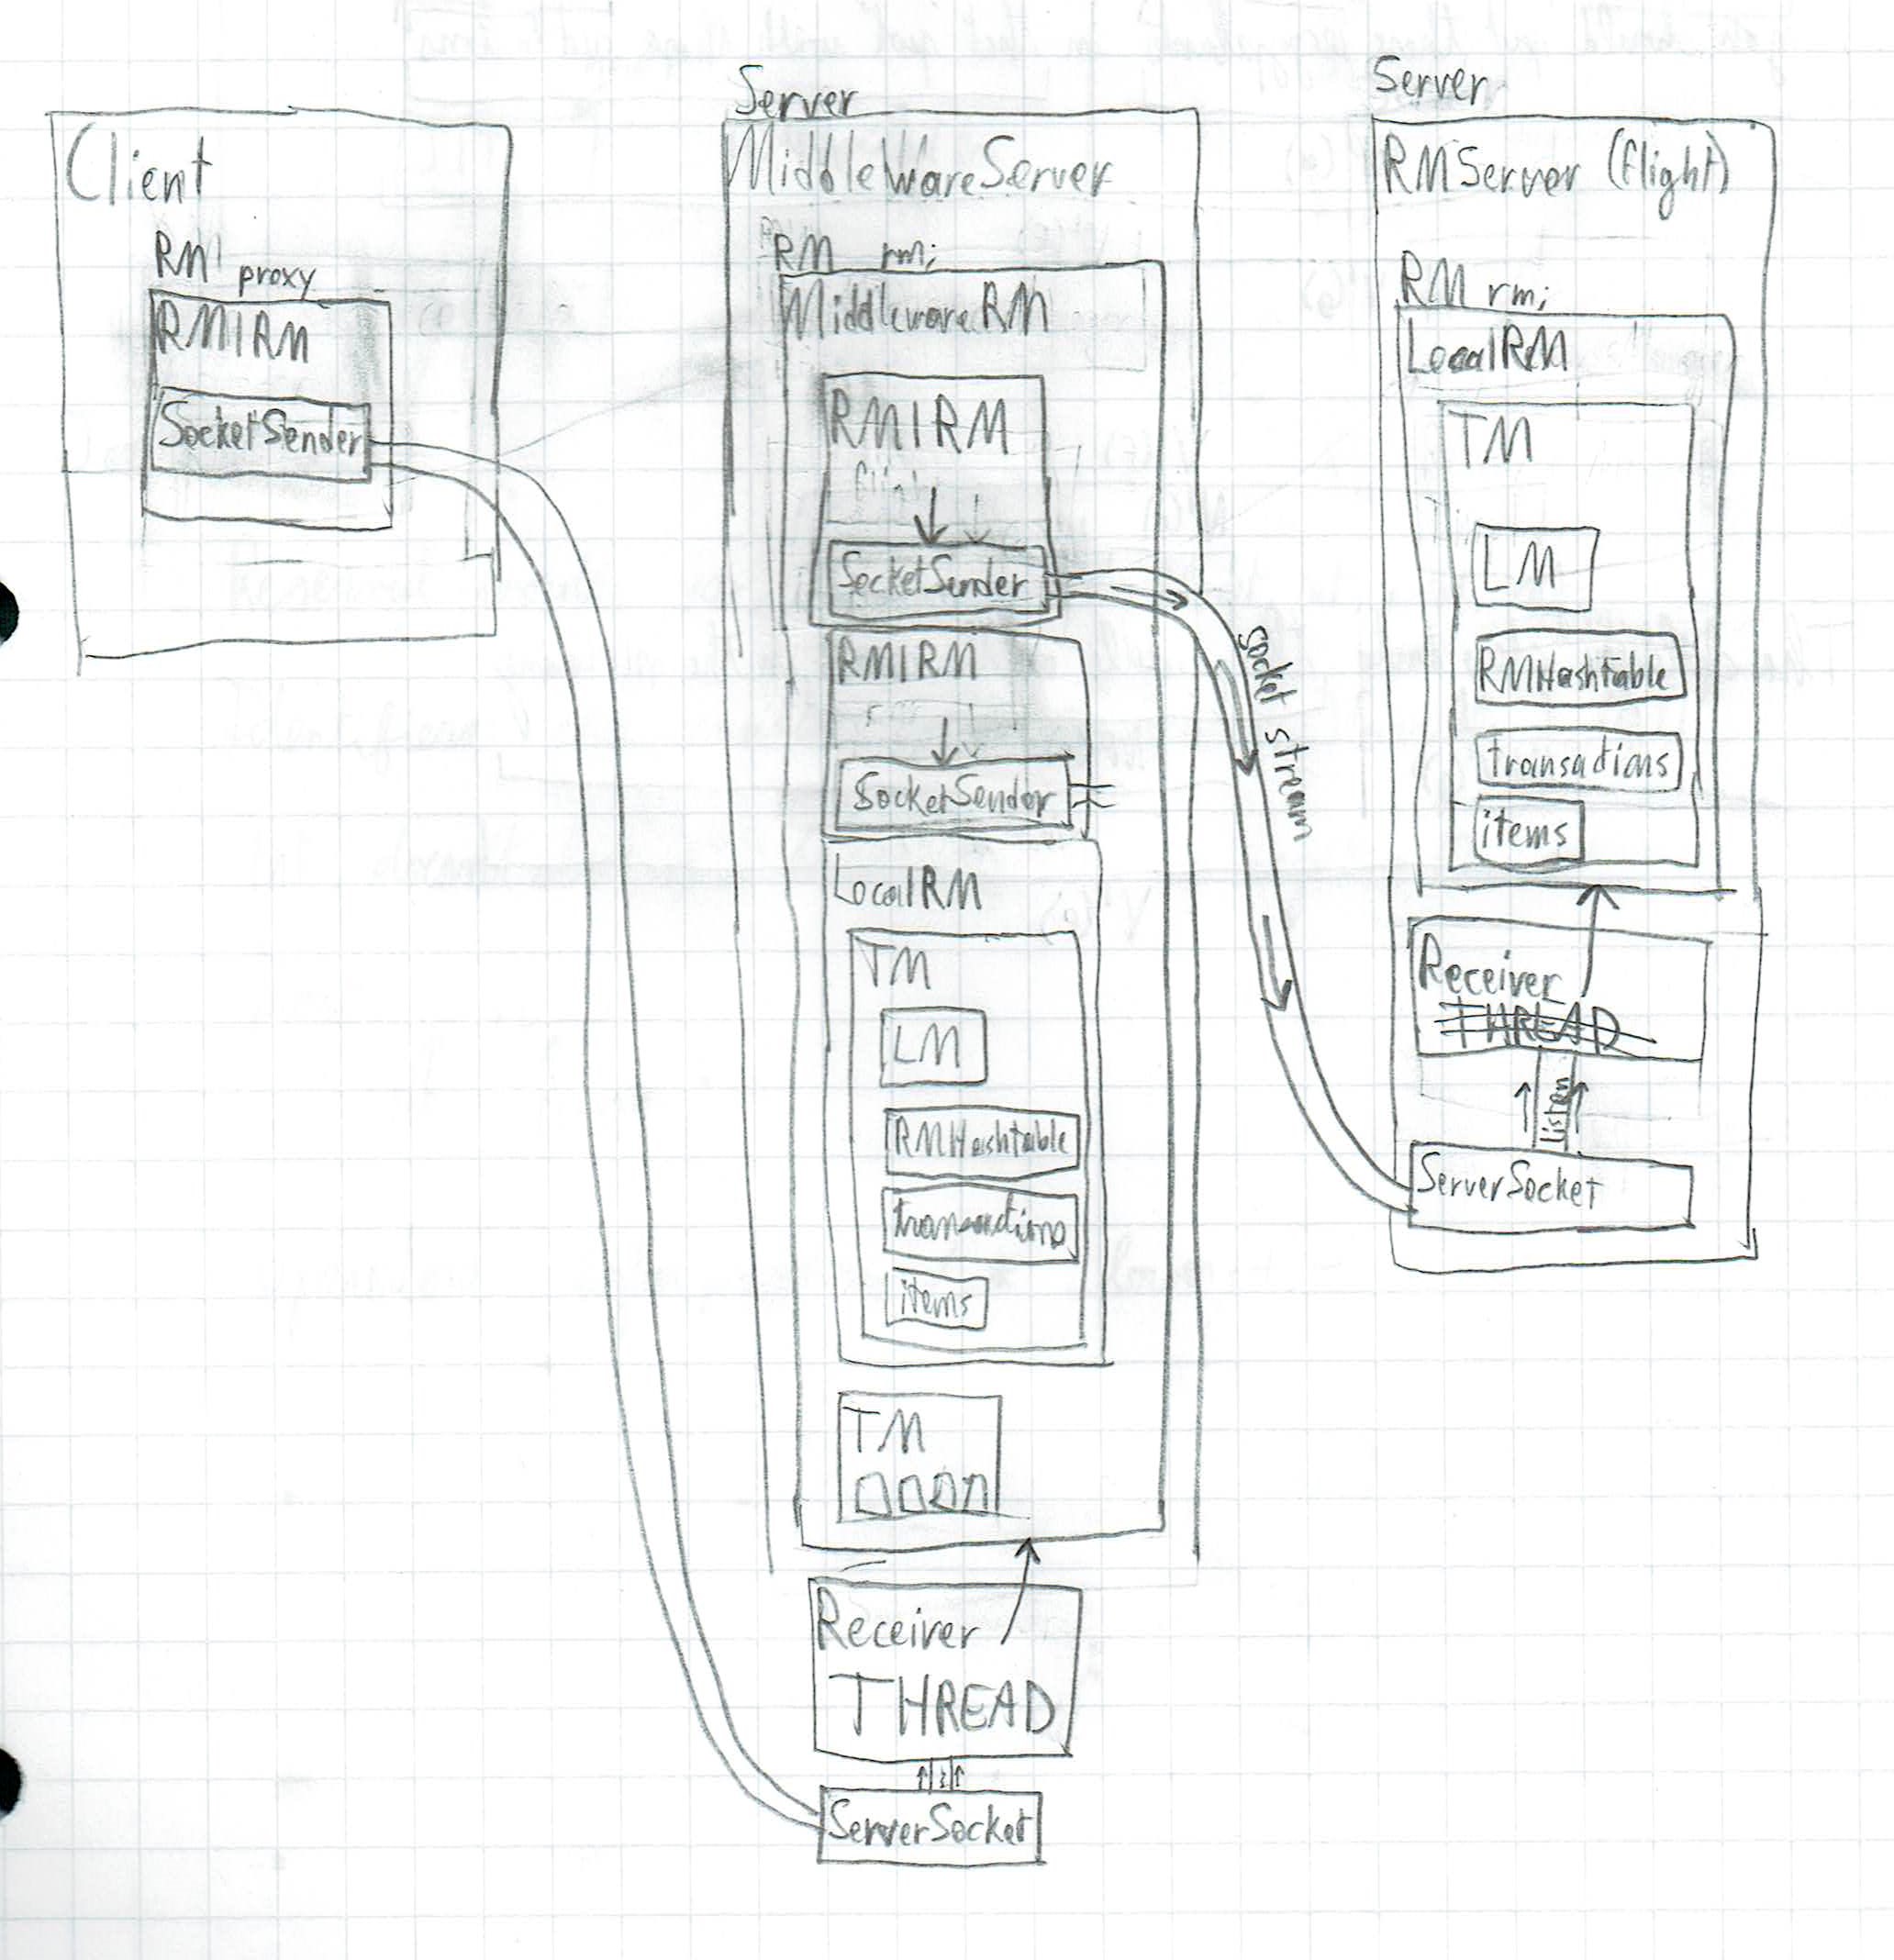 Client
RM proxy
RMIRM
SocketSender
Server
MiddleWareServer
RM rm;
MiddlewareRM
RMIRM
SocketSender
RMIRM
SocketSender
LocalRM
TM
LM
RMHashtable
transactions
items
TM
Receiver
THREAD
ServerSocket
socket stream
Server
RMServer (flight)
RM rm;
LocalRM
TM
LM
RMHashtable
transactions
items
Receiver
THREAD
listen
ServerSocket